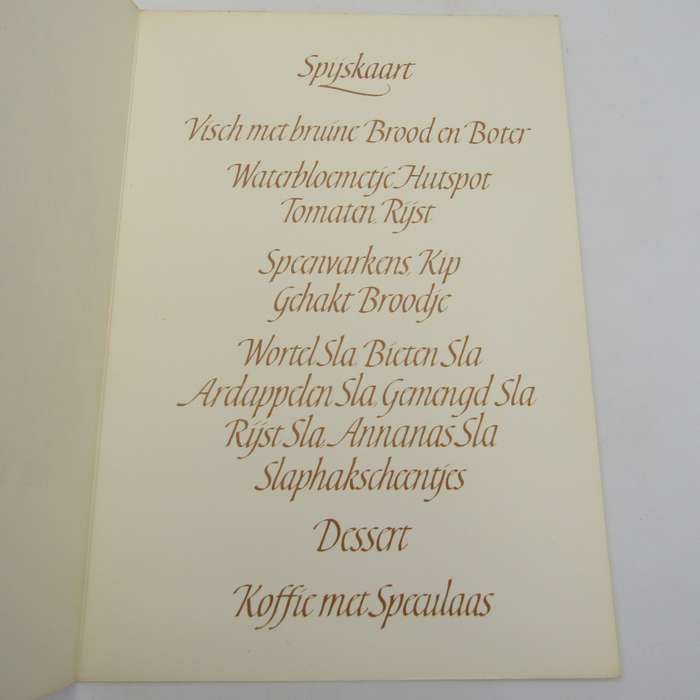 Spijskaart
Visch met bruine Brood en Boter
Waterbloemetje Hutspot
Tomaten, Rijst
Speenvarkens, Kip
Gehakt Broodje
Wortel Sla, Bieten Sla
Ardappelen Sla, Gemengd Sla
Rijst Sla, Annanas Sla
Slaphakscheentjes
Dessert
Koffie met Speculaas